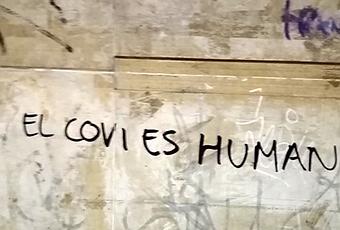 EL COVI ES HUMAN